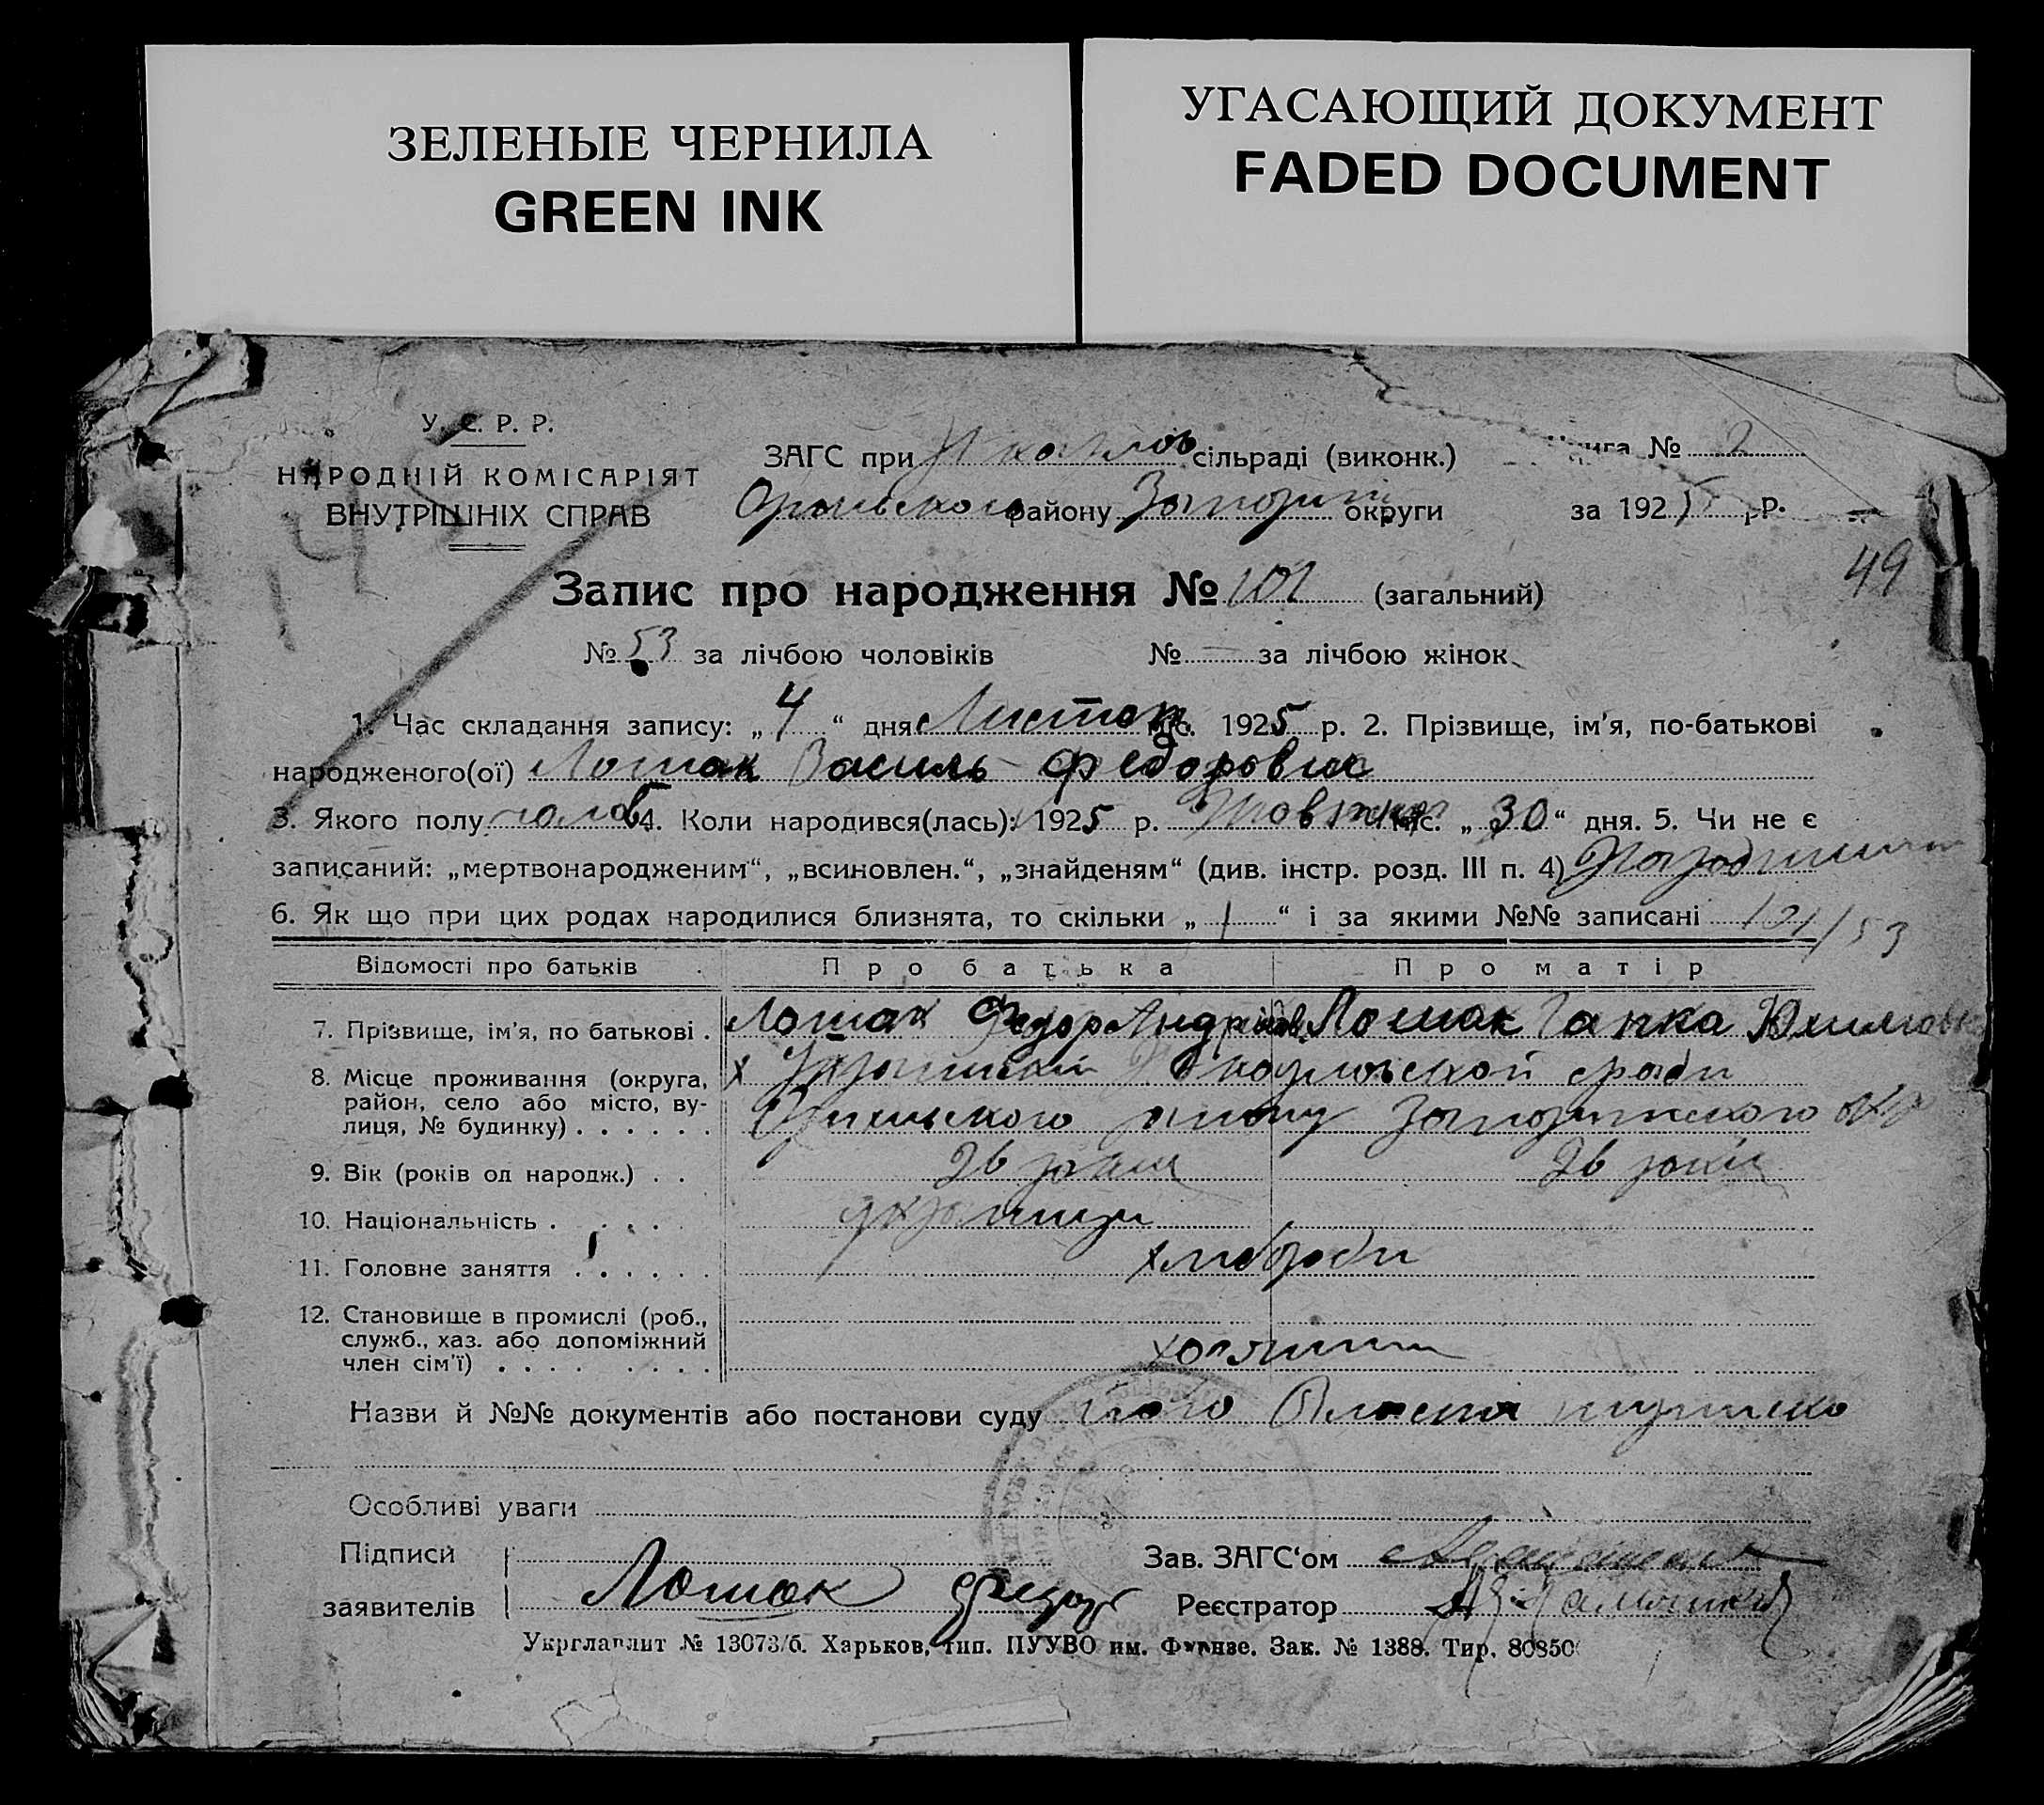 ЗЕЛЕНЫЕ ЧЕРНИЛА
GREEN INK
УГАСАЮЩИЙ ДОКУМЕНТ
FADED DOCUMENT
У. С. Р. Р.
НАРОДНІЙ КОМІСАРІЯТ
ВНУТРІШНІХ СПРАВ
ЗАГС при сільраді (виконк.)
району округи
Книга № 2
за 1925 р.
49
Запис про народження № 101 (загальний)
№ 53 за лічбою чоловіків № — за лічбою жінок
1. Час складання запису: „ 4 “ дня Листоп міс. 1925 р. 2. Прізвище, ім'я, по-батькові
народженого(ої) Лошак Василь Федорович
3. Якого полу чолов 4. Коли народився(лась): 1925 р. Жовтня міс. „ 30 “ дня. 5. Чи не є
записаний: „мертвонародженим“, „всиновлен.“, „знайденям“ (див. інстр. розд. III п. 4)
6. Як що при цих родах народилися близнята, то скільки „ 1 “ і за якими №№ записані 101/53
Відомості про батьків Про батька Про матір
7. Прізвище, ім'я, по батькові . Лошак Федор Андріев Лошак Ганка Юхимовна
8. Місце проживання (округа,
район, село або місто, ву-
лиця, № будинку) . . . . . .
9. Вік (років од народж.) . . 26 років 26 років
10. Національність . . . . . українци
11. Головне заняття . . . . . . хлибороби
12. Становище в промислі (роб.,
служб., хаз. або допоміжний
член сім'ї) . . . . . . . . хозяини
Назви й №№ документів або постанови суду
Особливі уваги
Підписи
заявителів Лошак Федор
Зав. ЗАГС‘ом
Реєстратор
Укрглавлит № 13073/б. Харьков, тип. ПУУВО им. Фрунзе. Зак. № 1388. Тир. 80850